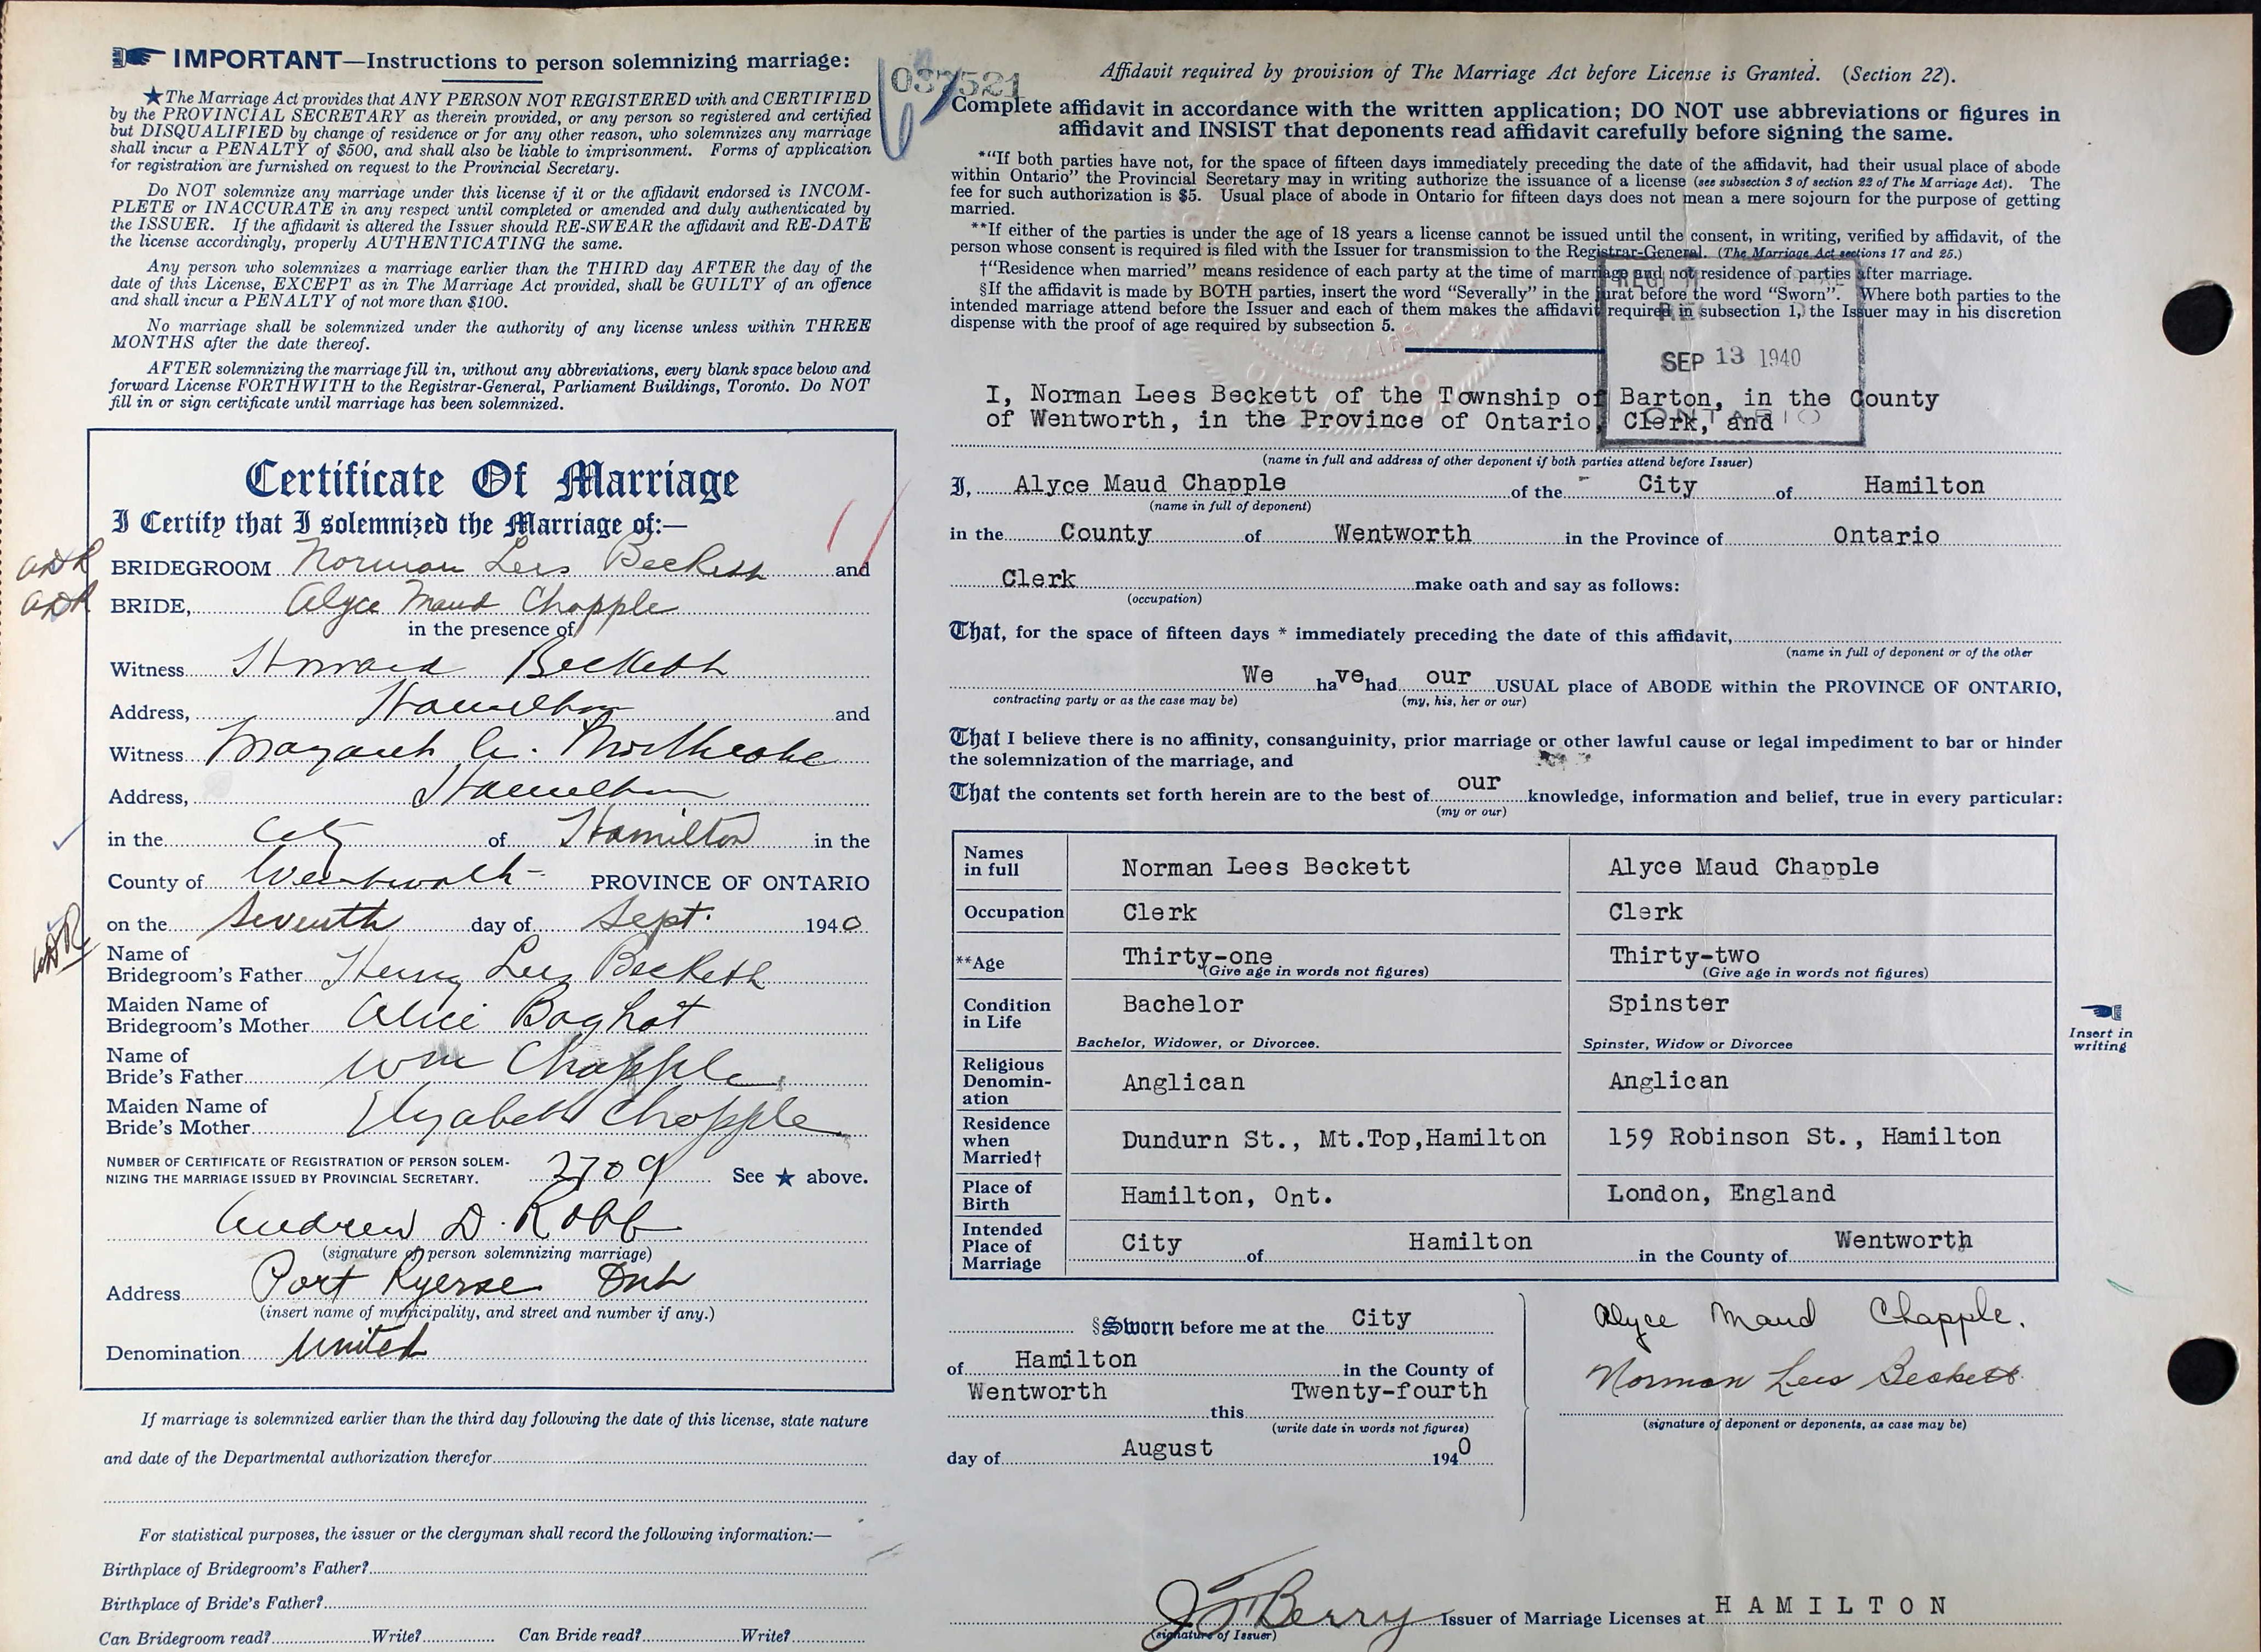 IMPORTANT—Instructions to person solemnizing marriage:
★The Marriage Act provides that ANY PERSON NOT REGISTERED with and CERTIFIED
by the PROVINCIAL SECRETARY as therein provided, or any person so registered and certified
but DISQUALIFIED by change of residence or for any other reason, who solemnizes any marriage
shall incur a PENALTY of $500, and shall also be liable to imprisonment. Forms of application
for registration are furnished on request to the Provincial Secretary.
Do NOT solemnize any marriage under this license if it or the affidavit endorsed is INCOM-
PLETE or INACCURATE in any respect until completed or amended and duly authenticated by
the ISSUER. If the affidavit is altered the Issuer should RE-SWEAR the affidavit and RE-DATE
the license accordingly, properly AUTHENTICATING the same.
Any person who solemnizes a marriage earlier than the THIRD day AFTER the day of the
date of this License, EXCEPT as in The Marriage Act provided, shall be GUILTY of an offence
and shall incur a PENALTY of not more than $100.
No marriage shall be solemnized under the authority of any license unless within THREE
MONTHS after the date thereof.
AFTER solemnizing the marriage fill in, without any abbreviations, every blank space below and
forward License FORTHWITH to the Registrar-General, Parliament Buildings, Toronto. Do NOT
fill in or sign certificate until marriage has been solemnized.
Certificate Of Marriage
I Certify that I solemnized the Marriage of:—
BRIDEGROOM Norman Lees Beckett and
BRIDE, Alyce Maud Chapple
in the presence of
Witness Howard Beckett
Address, Hamilton and
Witness Margaret
Address, Hamilton
in the City of Hamilton in the
County of Wentworth - PROVINCE OF ONTARIO
on the Seventh day of Sept. 1940
Name of
Bridegroom's Father Henry Lees Beckett
Maiden Name of
Bridegroom's Mother Alice Baghot
Name of
Bride's Father Wm Chapple
Maiden Name of
Bride's Mother Elyzabeth Chapple
NUMBER OF CERTIFICATE OF REGISTRATION OF PERSON SOLEM-
NIZING THE MARRIAGE ISSUED BY PROVINCIAL SECRETARY. 2709 See ★ above.
Andrew D. Robb
(signature of person solemnizing marriage)
Address Port Ryerse Ont
(insert name of municipality, and street and number if any.)
Denomination United
If marriage is solemnized earlier than the third day following the date of this license, state nature
and date of the Departmental authorization therefor
For statistical purposes, the issuer or the clergyman shall record the following information:—
Birthplace of Bridegroom's Father?
Birthplace of Bride's Father?
Can Bridegroom read? Write? Can Bride read? Write?
037521
Affidavit required by provision of The Marriage Act before License is Granted. (Section 22).
Complete affidavit in accordance with the written application; DO NOT use abbreviations or figures in
affidavit and INSIST that deponents read affidavit carefully before signing the same.
*"If both parties have not, for the space of fifteen days immediately preceding the date of the affidavit, had their usual place of abode
within Ontario" the Provincial Secretary may in writing authorize the issuance of a license (see subsection 3 of section 22 of The Marriage Act). The
fee for such authorization is $5. Usual place of abode in Ontario for fifteen days does not mean a mere sojourn for the purpose of getting
married.
**If either of the parties is under the age of 18 years a license cannot be issued until the consent, in writing, verified by affidavit, of the
person whose consent is required is filed with the Issuer for transmission to the Registrar-General. (The Marriage Act sections 17 and 25.)
†"Residence when married" means residence of each party at the time of marriage and not residence of parties after marriage.
§If the affidavit is made by BOTH parties, insert the word "Severally" in the jurat before the word "Sworn". Where both parties to the
intended marriage attend before the Issuer and each of them makes the affidavit required in subsection 1, the Issuer may in his discretion
dispense with the proof of age required by subsection 5.
SEP 13 1940
ONTARIO
I, Norman Lees Beckett of the Township of Barton, in the County
of Wentworth, in the Province of Ontario, Clerk, and
(name in full and address of other deponent if both parties attend before Issuer)
I, Alyce Maud Chapple of the City of Hamilton
(name in full of deponent)
in the County of Wentworth in the Province of Ontario
Clerk make oath and say as follows:
(occupation)
That, for the space of fifteen days * immediately preceding the date of this affidavit,
(name in full of deponent or of the other
We have had our USUAL place of ABODE within the PROVINCE OF ONTARIO,
contracting party or as the case may be) (my, his, her or our)
That I believe there is no affinity, consanguinity, prior marriage or other lawful cause or legal impediment to bar or hinder
the solemnization of the marriage, and
That the contents set forth herein are to the best of our knowledge, information and belief, true in every particular:
(my or our)
Names in full Norman Lees Beckett Alyce Maud Chapple
Occupation Clerk Clerk
**Age Thirty-one Thirty-two
(Give age in words not figures) (Give age in words not figures)
Condition in Life Bachelor Spinster
Bachelor, Widower, or Divorcee. Spinster, Widow or Divorcee
Insert in
writing
Religious Denomin-ation Anglican Anglican
Residence when Married† Dundurn St., Mt.Top,Hamilton 159 Robinson St., Hamilton
Place of Birth Hamilton, Ont. London, England
Intended Place of Marriage City of Hamilton in the County of Wentworth
§Sworn before me at the City
of Hamilton in the County of
Wentworth this Twenty-fourth
(write date in words not figures)
day of August 1940
Alyce Maud Chapple.
Norman Lees Beckett
(signature of deponent or deponents, as case may be)
J T Berry Issuer of Marriage Licenses at HAMILTON
(signature of Issuer)